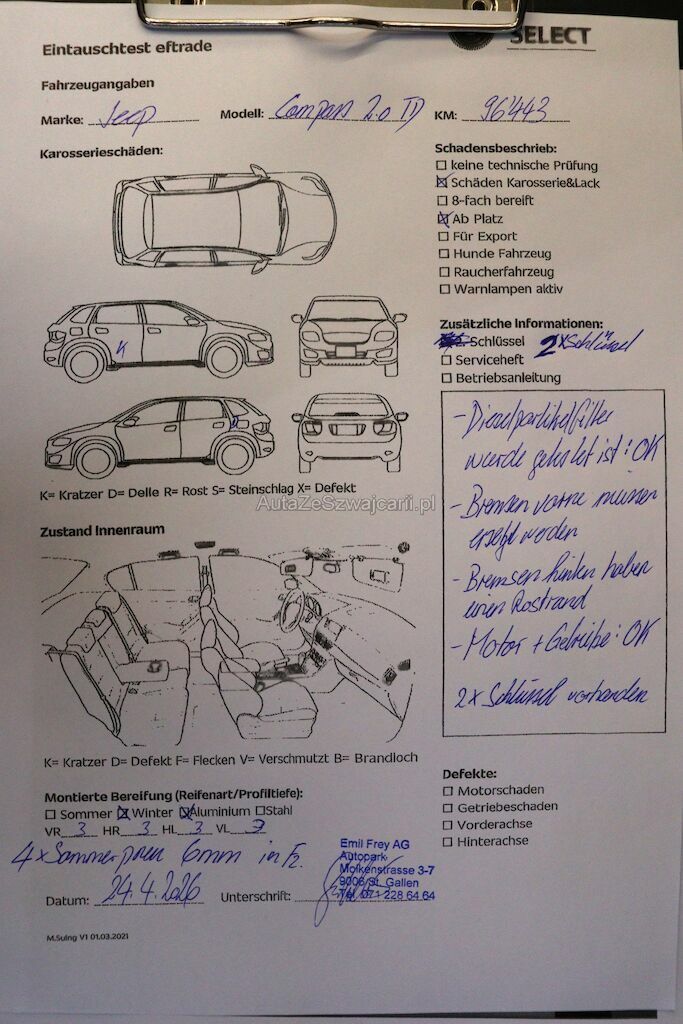 SELECT
Eintauschtest eftrade
Fahrzeugangaben
Marke: Jeep Modell: Compass 2.0 TD KM: 96'443
Karosserieschäden:
Schadensbeschrieb:
☐ keine technische Prüfung
☒ Schäden Karosserie&Lack
☐ 8-fach bereift
☒ Ab Platz
☐ Für Export
☐ Hunde Fahrzeug
☐ Raucherfahrzeug
☐ Warnlampen aktiv
K
Zusätzliche Informationen:
Schlüssel 2xSchlüssel
☐ Serviceheft
☐ Betriebsanleitung
K= Kratzer D= Delle R= Rost S= Steinschlag X= Defekt
AutaZeSzwajcarii.pl
- Dieselpartikelfilter
wurde getestet ist: OK
- Bremsen vorne müssen
ersetzt werden
- Bremsen hinten haben
einen Rostrand
- Motor + Getriebe: OK
2x Schlüssel vorhanden
Zustand Innenraum
K= Kratzer D= Defekt F= Flecken V= Verschmutzt B= Brandloch
Defekte:
☐ Motorschaden
☐ Getriebeschaden
☐ Vorderachse
☐ Hinterachse
Montierte Bereifung (Reifenart/Profiltiefe):
☐ Sommer ☒ Winter ☒ Aluminium ☐ Stahl
VR 3 HR 3 HL 3 VL 3
4x Sommer 6mm in Fz.
Emil Frey AG
Autopark
Molkenstrasse 3-7
9006 St. Gallen
Tel. 071 228 64 64
Datum: 24.4.2026 Unterschrift:
M.Suing V1 01.03.2021